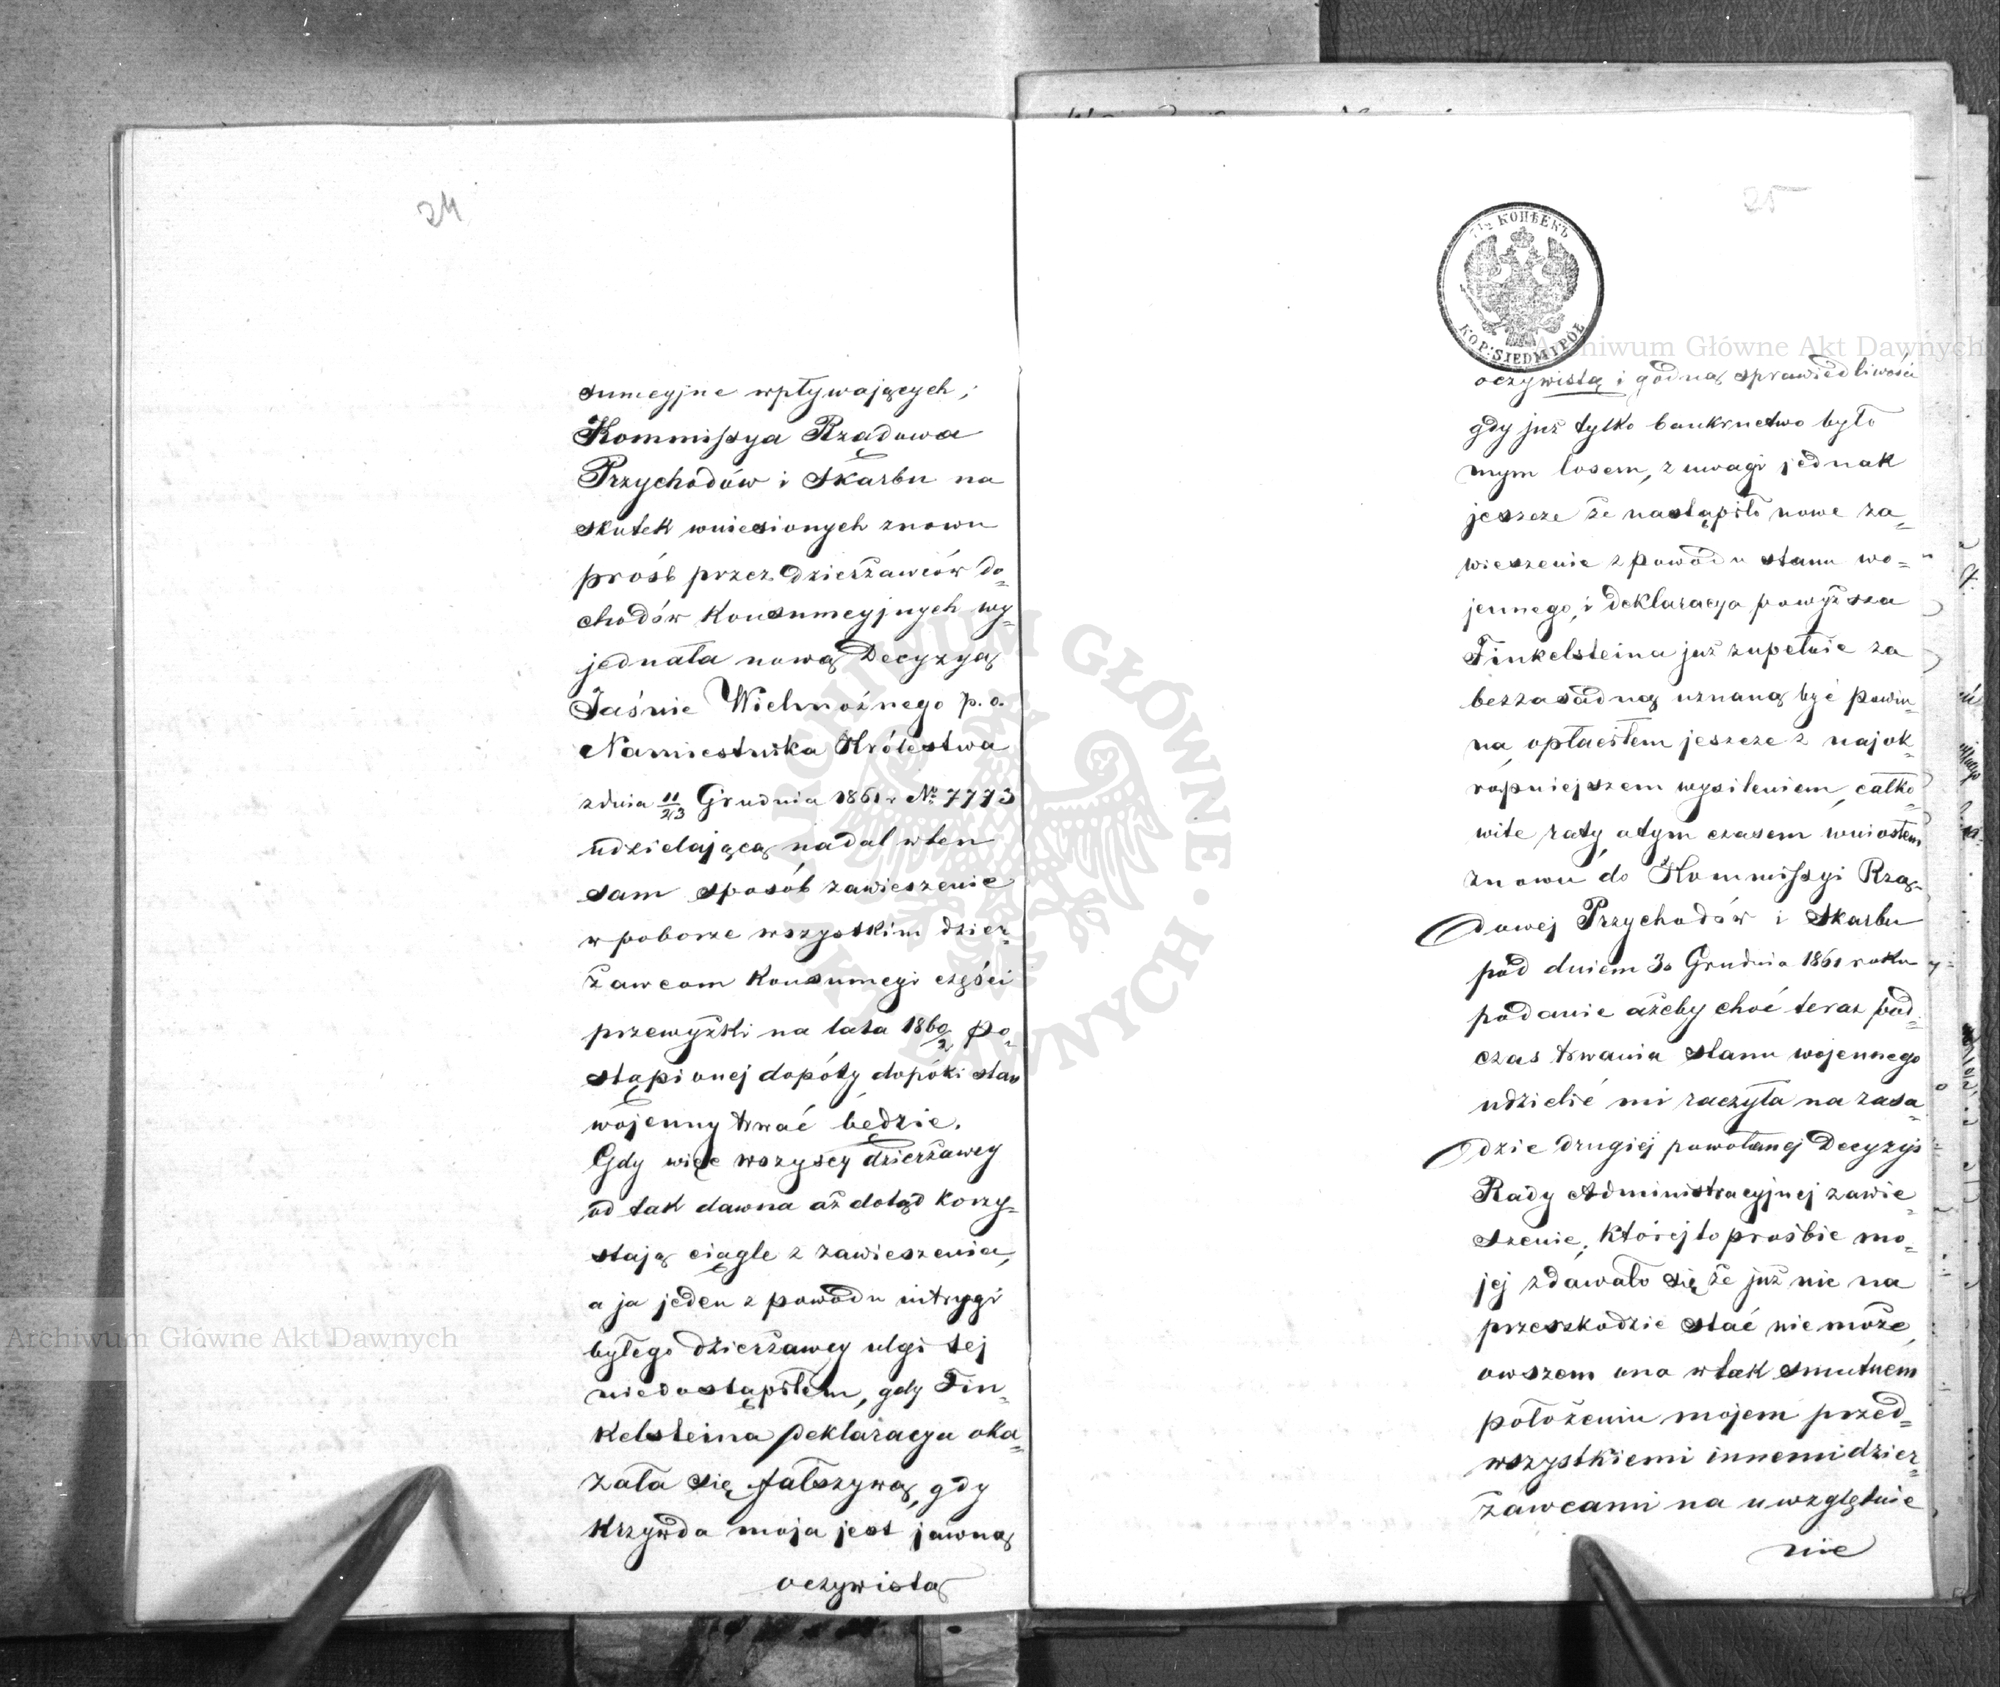 24
sumcyjne wpływających;
Kommissya Rządowa
Przychodów i Skarbu na
skutek wniesionych znowu
prośb przez dzierżawców do-
chodów Konsumcyjnych wy-
jednała nową Decyzyą
Jaśnie Wielmożnego p.o.
Namiestnika Królestwa
z dnia 11/23 Grudnia 1861 r No 7773
udzielającą nadal w ten
sam sposób zawieszenie
w poborze wszystkim dzier-
żawcom Konsumcyi części
przewyżki na lata 1860/2 po-
stąpionej dopóty dopóki stan
wojenny trwać będzie.
Gdy więc wszyscy dzierżawcy
od tak dawna aż dotąd korzy-
stają ciągle z zawieszenia,
a ja jeden z powodu intrygi
byłego dzierżawcy ulgi tej
niedostąpiłem, gdy Fin-
kelsteina deklaracya oka-
zała się fałszywą, gdy
Krzywda moja jest jawną
oczywistą
25
7 1/2 КОПѢЕКЪ
KOP: SIEDM I PÓŁ
oczywistą i godną sprawiedliwości
gdy już tylko bankructwo było
mym losem, z uwagi jednak
jeszcze że nastąpiło nowe za-
wieszenie z powodu stanu wo-
jennego, i deklaracya powyższa
Finkelsteina już zupełnie za
bezzasadną uznaną być powin-
na, opłaciłem jeszcze z najok-
ropniejszem wysileniem, całko-
wite raty, a tym czasem wniosłem
znowu do Kommissyi Rzą-
dowej Przychodów i Skarbu
pod dniem 30 Grudnia 1861 roku
podanie ażeby choć teraz pod-
czas trwania stanu wojennego
udzielić mi raczyła na zasa-
dzie drugiej powołanej Decyzyi
Rady Administracyjnej zawie-
szenie, której to prośbie mo-
jej zdawało się że już nic na
przeszkodzie stać nie może,
owszem ona w tak smutnem
położeniu mojem przed-
wszystkiemi innemi dzier-
żawcami na uwzględnie
nie
Archiwum Główne Akt Dawnych
Archiwum Główne Akt Dawnych
ARCHIWUM GŁÓWNE AKT DAWNYCH